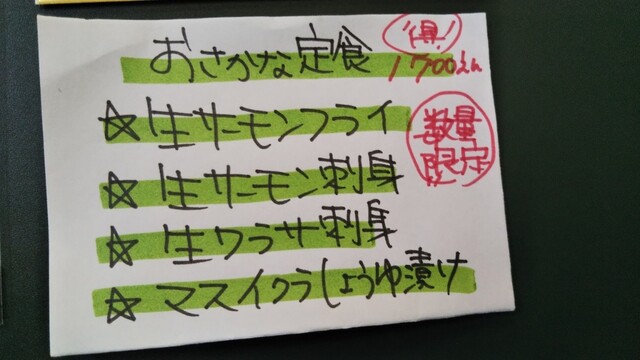 おさかな定食
得!
1700えん
☆生サーモンフライ
数量
限定
☆生サーモン刺身
☆生ワラサ刺身
☆マスイクラしょうゆ漬け